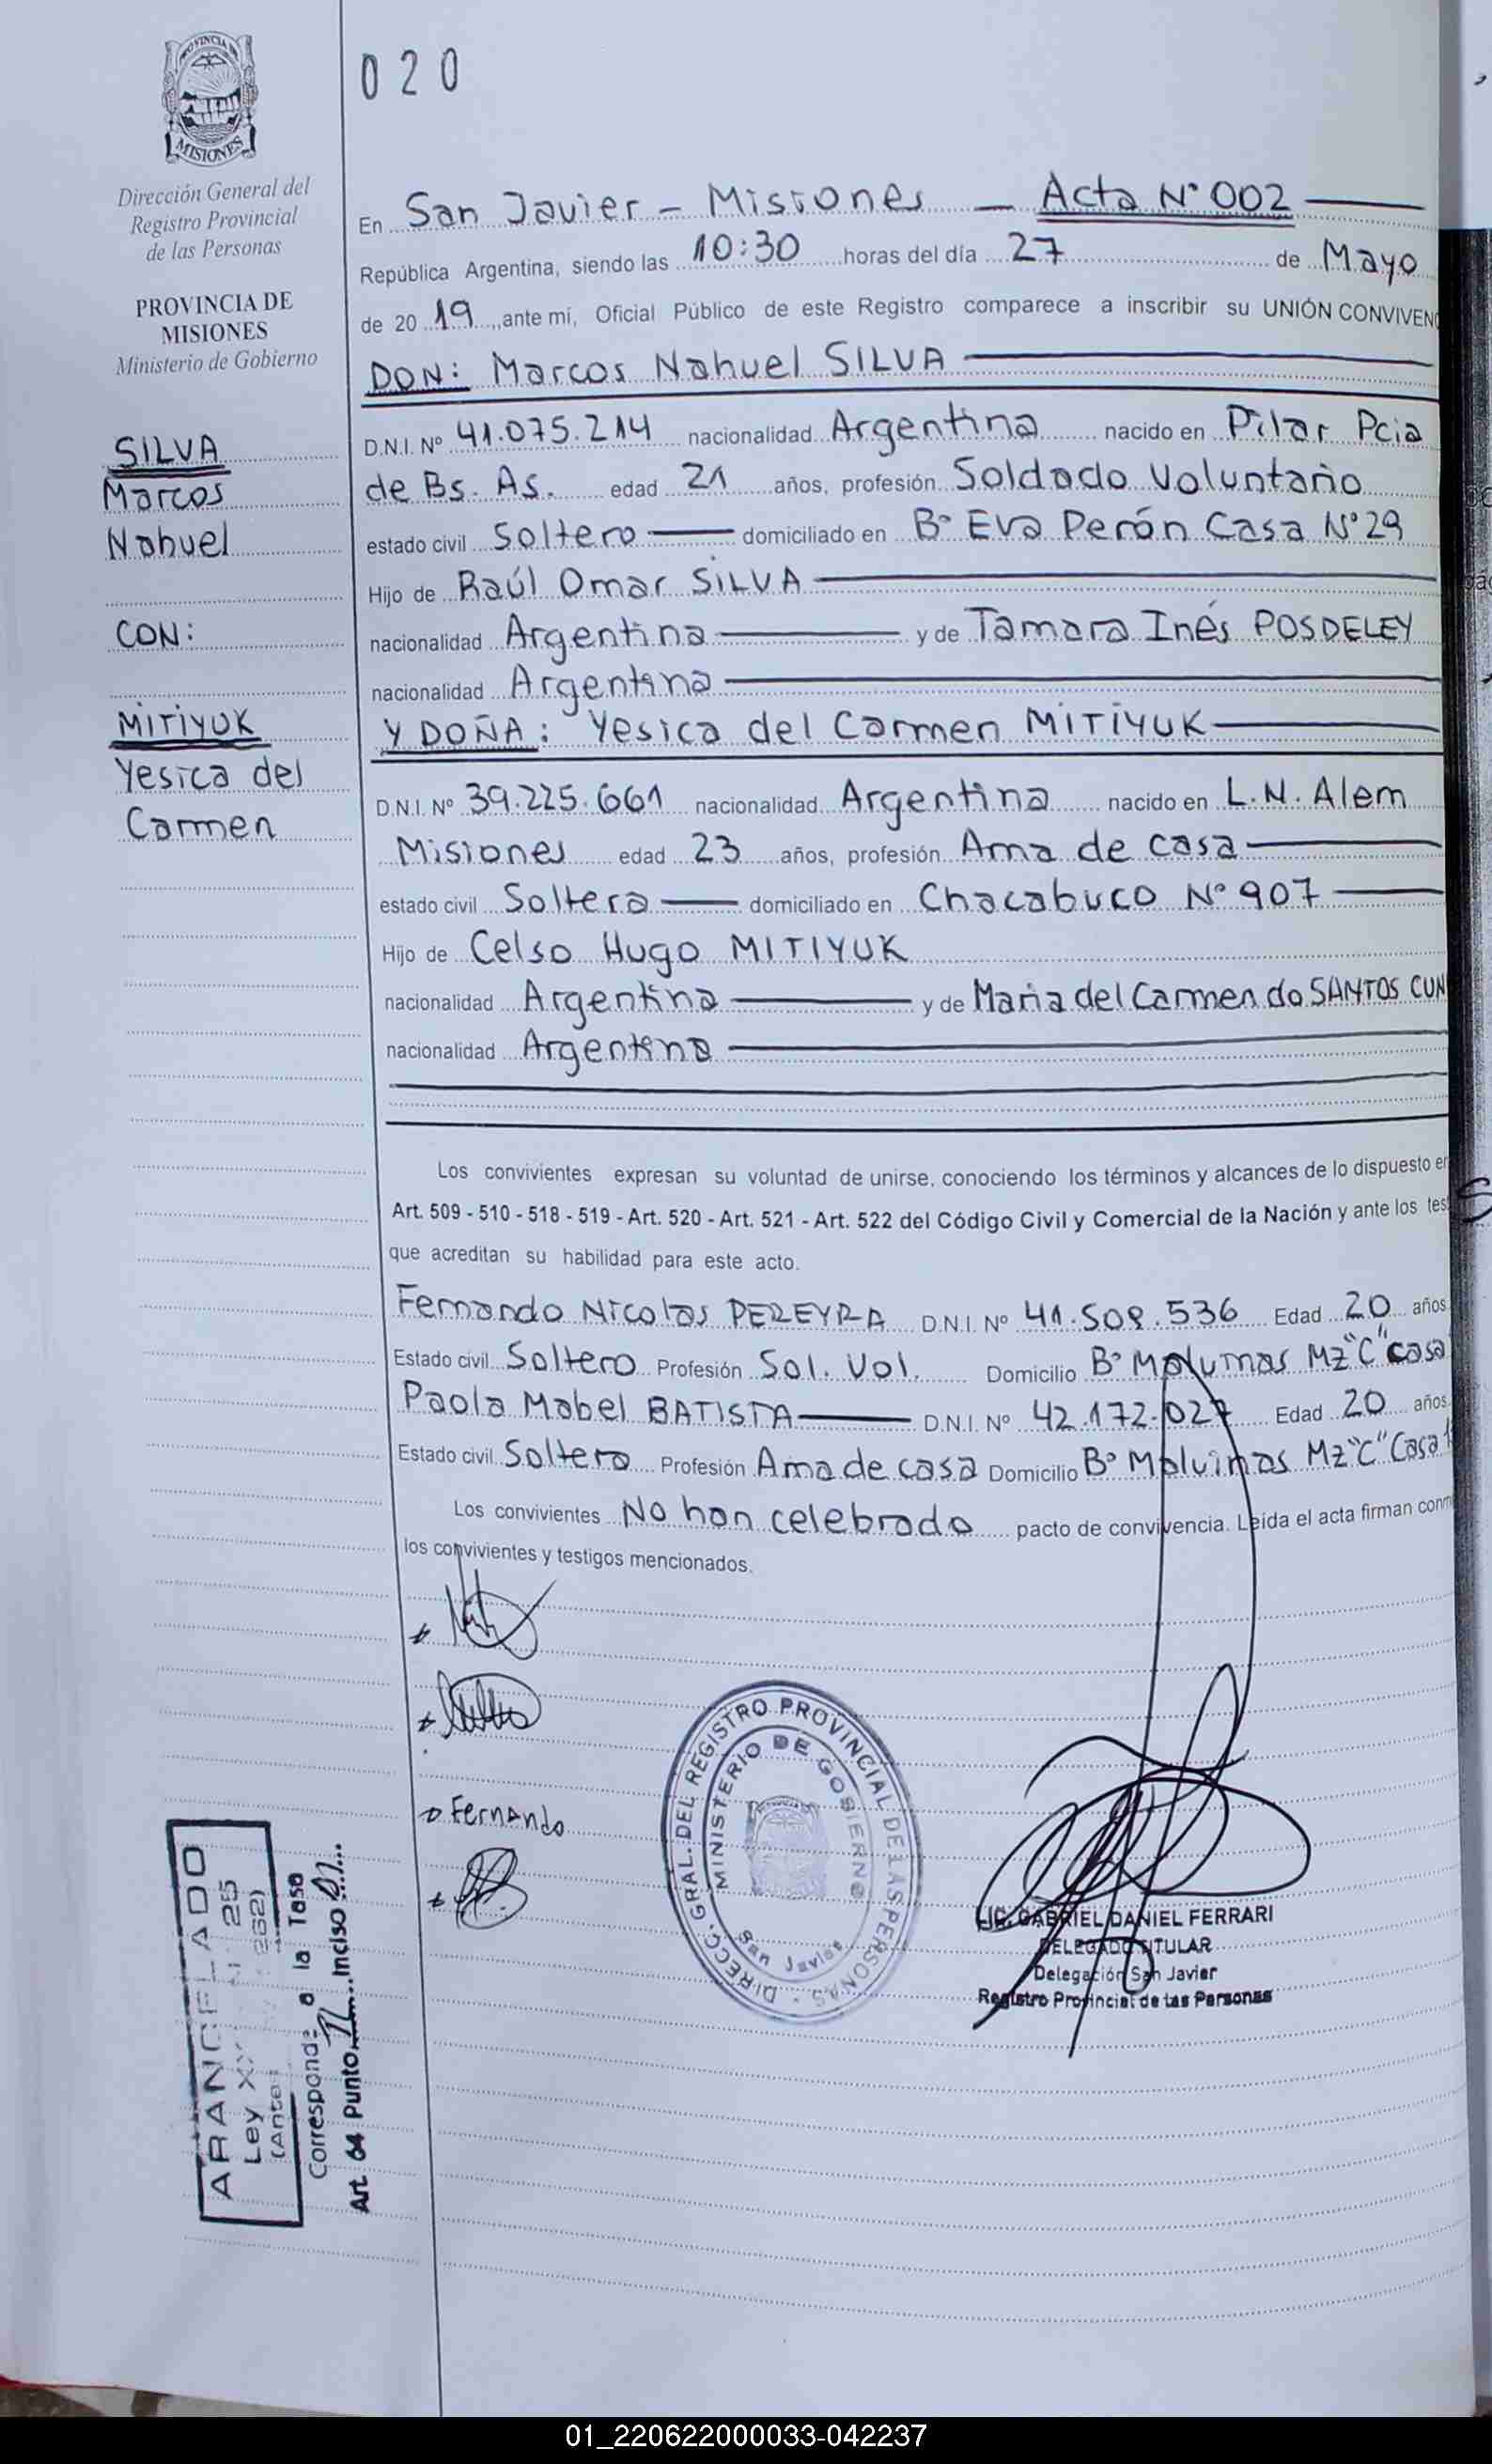 PROVINCIA DE
MISIONES
Dirección General del
Registro Provincial
de las Personas
PROVINCIA DE
MISIONES
Ministerio de Gobierno
SILVA
Marcos
Nahuel
CON:
MITIYUK
Yesica del
Carmen
020
En San Javier - Misiones - Acta N° 002
República Argentina, siendo las 10:30 horas del día 27 de Mayo
de 20 19, ante mí, Oficial Público de este Registro comparece a inscribir su UNIÓN CONVIVENC
DON: Marcos Nahuel SILVA
D.N.I. Nº 41.075.214 nacionalidad Argentina nacido en Pilar Pcia
de Bs. As. edad 21 años, profesión Soldado Voluntario
estado civil Soltero domiciliado en B° Eva Perón Casa N° 29
Hijo de Raúl Omar SILVA
nacionalidad Argentina y de Tamara Inés POSDELEY
nacionalidad Argentina
Y DOÑA: Yesica del Carmen MITIYUK
D.N.I. Nº 39.225.661 nacionalidad Argentina nacido en L.N. Alem
Misiones edad 23 años, profesión Ama de casa
estado civil Soltera domiciliado en Chacabuco N° 907
Hijo de Celso Hugo MITIYUK
nacionalidad Argentina y de Maria del Carmen do SANTOS CUN
nacionalidad Argentina
Los convivientes expresan su voluntad de unirse, conociendo los términos y alcances de lo dispuesto en
Art. 509 - 510 - 518 - 519 - Art. 520 - Art. 521 - Art. 522 del Código Civil y Comercial de la Nación y ante los tes
que acreditan su habilidad para este acto.
Fernando Nicolas PEREYRA D.N.I. Nº 41.508.536 Edad 20 años
Estado civil Soltero Profesión Sol. Vol. Domicilio B° Malvinas Mz "C" casa
Paola Mabel BATISTA D.N.I. Nº 42.172.027 Edad 20 años
Estado civil Soltero Profesión Ama de casa Domicilio B° Malvinas Mz "C" Casa
Los convivientes No han celebrado pacto de convivencia. Leída el acta firman conm
los convivientes y testigos mencionados.
Fernando
DIRECC. GRAL. DEL REGISTRO PROVINCIAL DE LAS PERSONAS
MINISTERIO DE GOBIERNO
San Javier
LIC. GABRIEL DANIEL FERRARI
DELEGADO TITULAR
Delegación San Javier
Registro Provincial de las Personas
ARANCELADO
Ley XX 25
(Antes 262)
Corresponde a la Tasa
Art. 64 Punto Inciso
01_220622000033-042237